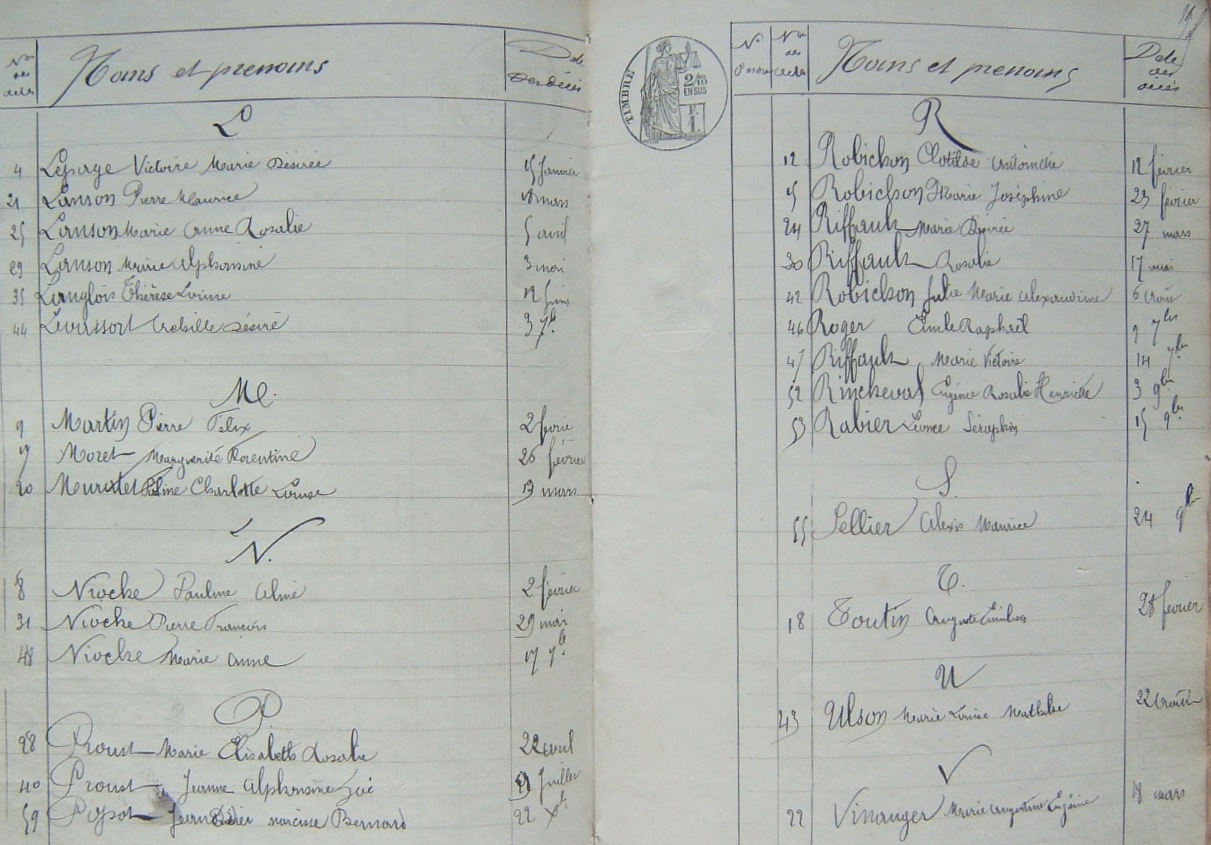 Nos des actes Noms et prenoms Date des décès
L
4 Lepage Victoire Marie Désirée 15 janvier
21 Lanson Pierre Maurice 18 mars
25 Lanson Marie Anne Rosalie 5 avril
29 Lanson Marie Alphonsine 3 mai
35 Langlois Thérèse Louise 12 juin
44 Désiré 3 7b
M.
9 Martin Pierre Felix 2 février
17 Moret Marguerite Florentine 26 février
20 Charlotte Louise 13 mars
N.
8 Niocke Pauline Aline 2 février
31 Niocke Pierre François 29 mai
48 Niocke Marie Anne 17 7b
P.
28 Proust Marie Elisabeth Rosalie 22 avril
40 Proust Jeanne Alphonsine Zoé 21 Juillet
59 Narcisse Bernard 22 Xb
TIMBRE
2/10
EN SUS
F.
1.
Nos d'ordre Nos des actes Noms et prenoms Date des décès
R
12 Robichon Clotilde Antoinette 12 février
15 Robichon Marie Joséphine 23 février
24 Riffault Marie Désirée 27 mars
30 Riffault Rosalie 17 mai
42 Robichon Julie Marie Alexandrine 6 août
46 Roger Emile Raphaël 9 7bre
47 Riffault Marie Victoire 14 7bre
52 Rincheval Eugénie Rosalie Henriette 3 9bre
53 Rabier Léonce Séraphin 15 9bre
S.
55 Sellier Alexis Maurice 24 9b
T.
18 Toutin Auguste Emilien 28 février
U
43 Ulson Marie Louise Mathilde 22 août
V
22 Vinanger Marie Augustine Eugénie 18 mars